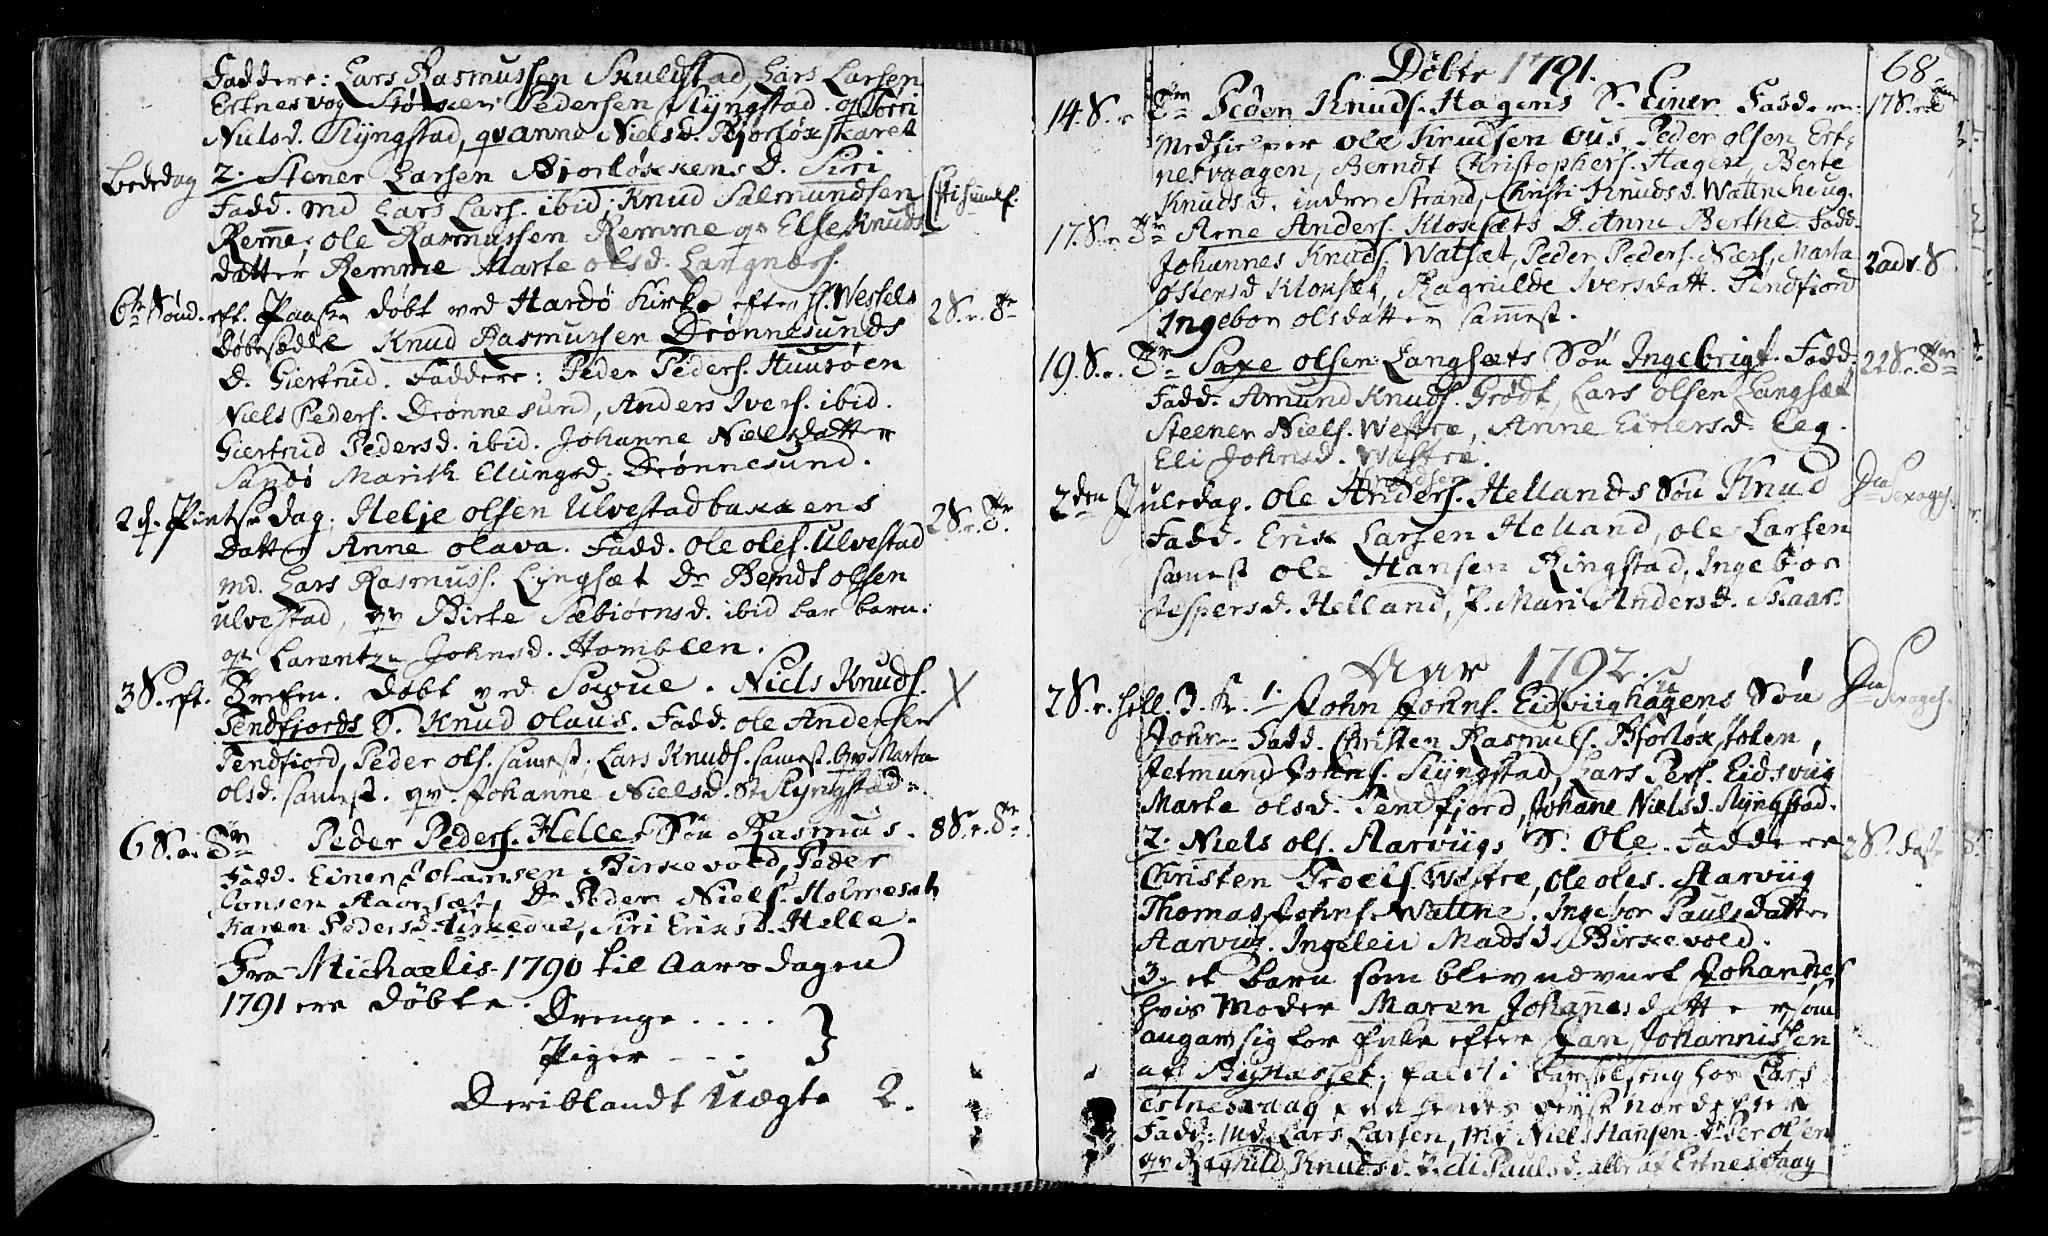 Faddere: Lars Rasmussen Skuldstad, Lars Larsen
Ertnesvog Pedersen Slÿngstad. og
Nielsd. Slÿngstad, qv anne Nielsd. Bjorløxskaret
Bededag 2. Stener Larsen Bjorløkkens D. Siri
Fadd. md Lars Lars. ibid, Knud Salmundsen
Reme, ole Rasmussen Remme qv Else Knuds
datter Remme Marte olsd. Langnæss.
6te Sönd. eft. Paaske døbt ved Harøe Kirke efter H. Wessels 2 S. e. Tr
døbesedle Knud Rasmussen Drønnesunds
D. Giertrud. Faddere: Peder Peders. Huusøen
Niels Peders. Drønnesund, Anders Ivers. ibid.
Giertrud Pedersd. ibid. Johanne Nielsdatter
Sandö Marith Ellingsd. Drønnesund.
2d. Pintsedag. Helje olsen Ulvestadbakkens 2 S. e. Tr.
datter Anne olava. Fadd. ole oles. Ulvestad
md. Lars Rasmuss. Lÿngsæt Dr Berndt olsen
Ulvestad, qv Birte Sæbiørnsd. ibid bar barn.
qv Larentze Johnsd. Hamblen.
3 S. eft. Trefen. døbt ved Sogne. Niels Knuds. X
Tendfjords S. Knud olaus. Fadd. ole Andersen
Tendfiord, Peder ols. samest, Lars Knuds. samest. qv Marta
olsd. samest. qv. Johanne Nielsd. Slyngstad.
6 S. e. Tr Peder Peders. Helles Søn Rasmus. 8 S. e. Tr.
Fadd. Einer Johansen Birkevold, Peder
Jonsen Aaorsæt, Dr Peder Niels. Holmesæt
Karen Pedersd. Kirkedal, Siri Eriks D. Helle.
Fra Michaelis 1790 til Aarsdagen
1791 ere døbte.
Drenge . . . .
Piger - . . .
Deriblandt Uægte 2.
Døbte 1791. 68
14. S. e Tr Peder Knuds. Hagens S. Einer Faddere: 17 S. e.
Medhielper ole Knudsen ous, Peder olsen Ert-
nesvaagen, Berndt Christophers. Hagen, Berte
Knudsd. indre Strand, Christi Knudsd. Watnehoug.
17. S. e Tr Arne Anders. Kloxsæts D. Anne Berthe Fadd.
Johannes Knuds. Watsæt, Peder Peders. Næss, Marta 2 adv. S
ostensd Kloxsæt, Ragnilde Iversdatt. Tendfiord
Ingebor olsdatter samest.
19. S. e. Tr Saxe olsen Langsæts Søn Ingebrigt. Fadd: 22 S. e. Tr
Fadd. Amund Knuds. Grødt, Lars olsen Langsæt
Steener Niels. Westre, Anne Einersd. Eeg.
Eli Johnsd. Westre.
2den Juledag. ole Anders. Hellands Søn Knud Dca Sexages.
Fadd. Erik Larsen Helland, ole Larsen
samest ole Hansen Ringstad, Ingebor
Jespersd. Helland, P. Mari Andersd. Skaar.
Aar 1792.
2 S. e. hell. 3. K. 1. John Johns. Eidsviighagens Søn Dca Sexages.
John Fadd. Christen Rasmuss. Bjorløxstolen,
Jetmund Johns. Slÿngstad, Lars Pers. Eidsviig
Marte olsd. Tendfjord, Johane Nielsd. Slÿngstad.
2. Niels ols. Aarviigs S. Ole. Faddere 2 S. i faste
Christen Troels. Westre, ole oles. Aarviig
Thomas Johns. Watne. Ingebor Paulsdatter
Aarviig. Ingelein Madsd. Birkevold.
3. et barn som blev nævnet Johannes
hvis Moder Maren Johanesdatter som
angav sig for efter Johannissen
af faldt i barselseng hos Lars
Ertnesvaag
Fadd: Md. Lars Larsen, Md Niels Hansen Dr Per olsen
qv Ragnild Knudsd. P. di Paulsd. alle af Ertnesvaag